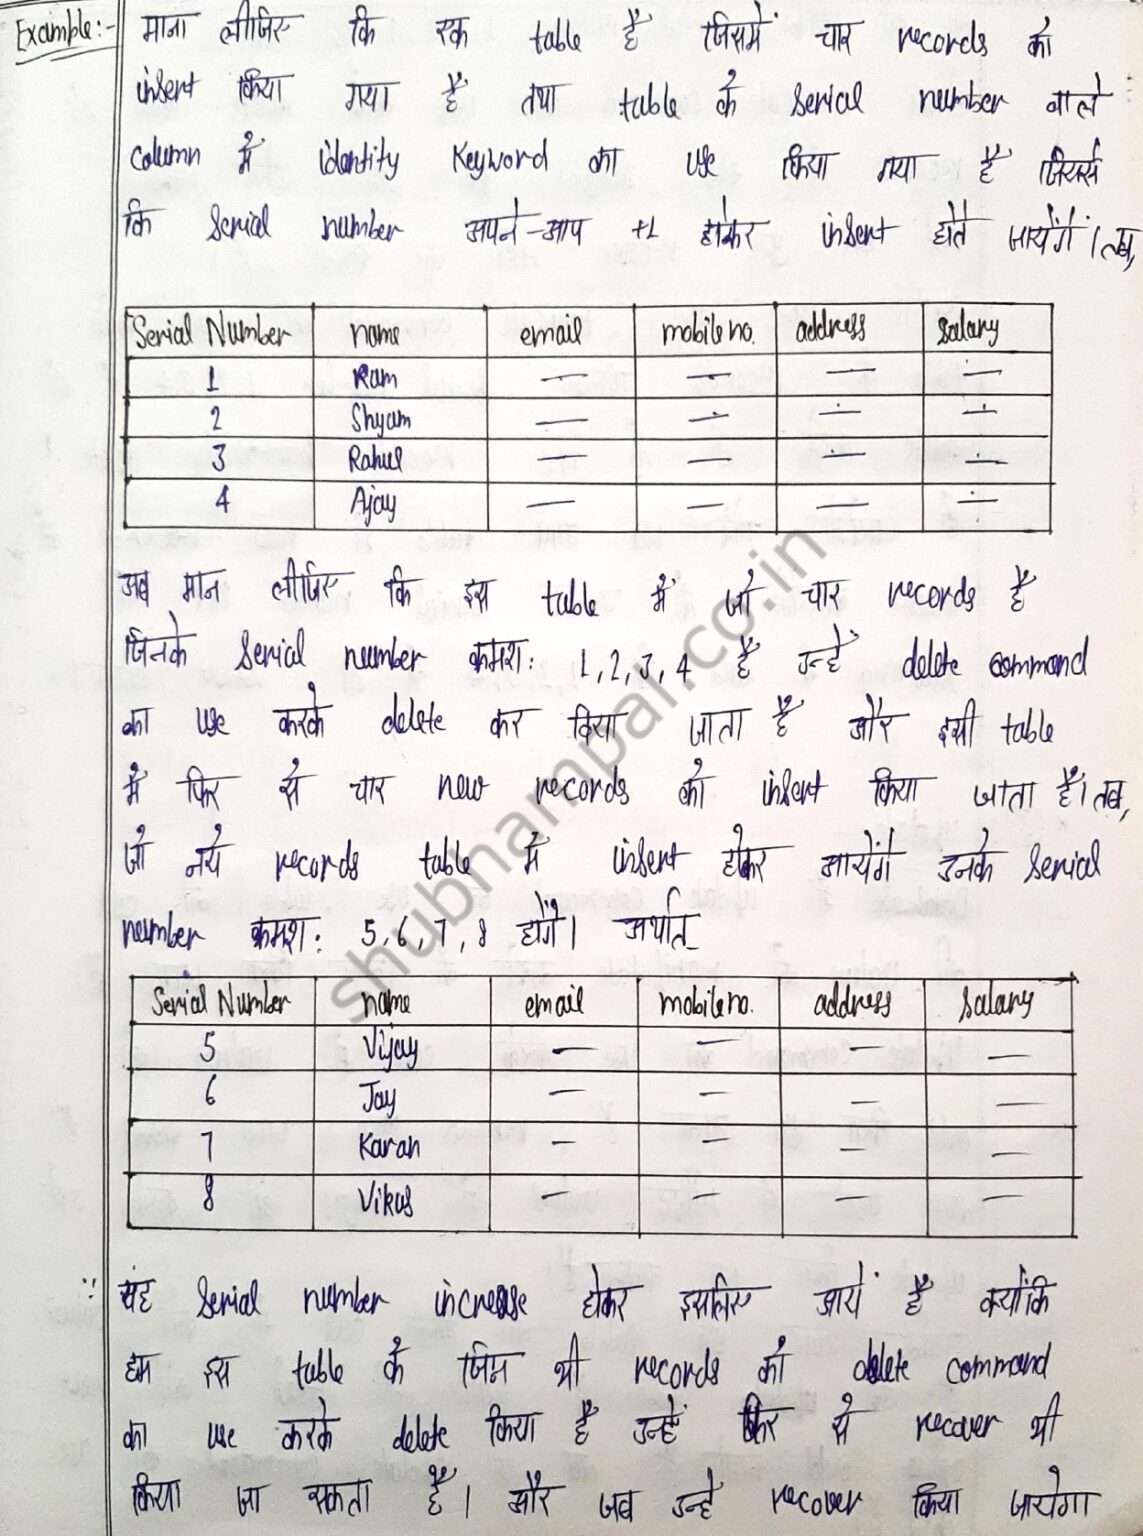 Example:- माना लीजिए कि एक table है जिसमें चार records को
insert किया गया है तथा table के serial number वाले
column में identity Keyword का use किया गया है जिससे
कि serial number अपने-आप +1 होकर insert होते जायेंगे। तब,
Serial Number name email mobile no. address salary
1 Ram — — — —
2 Shyam — — — —
3 Rahul — — — —
4 Ajay — — — —
अब मान लीजिए कि इस table में जो चार records है
जिनके serial number क्रमश: 1,2,3,4 है उन्हें delete command
का use करके delete कर दिया जाता है और इसी table
में फिर से चार new records को insert किया जाता है। तब,
जो नये records table में insert होकर आयेंगे उनके serial
number क्रमश: 5,6,7,8 होंगे। अर्थात्
Serial Number name email mobile no. address salary
5 Vijay — — — —
6 Jay — — — —
7 Karan — — — —
8 Vikas — — — —
∵ यह serial number increase होकर इसलिए आये है क्योंकि
हम इस table के जिन भी records को delete command
का use करके delete किया है उन्हें फिर से recover भी
किया जा सकता है। और जब उन्हें recover किया जायेगा
shubhampal.co.in